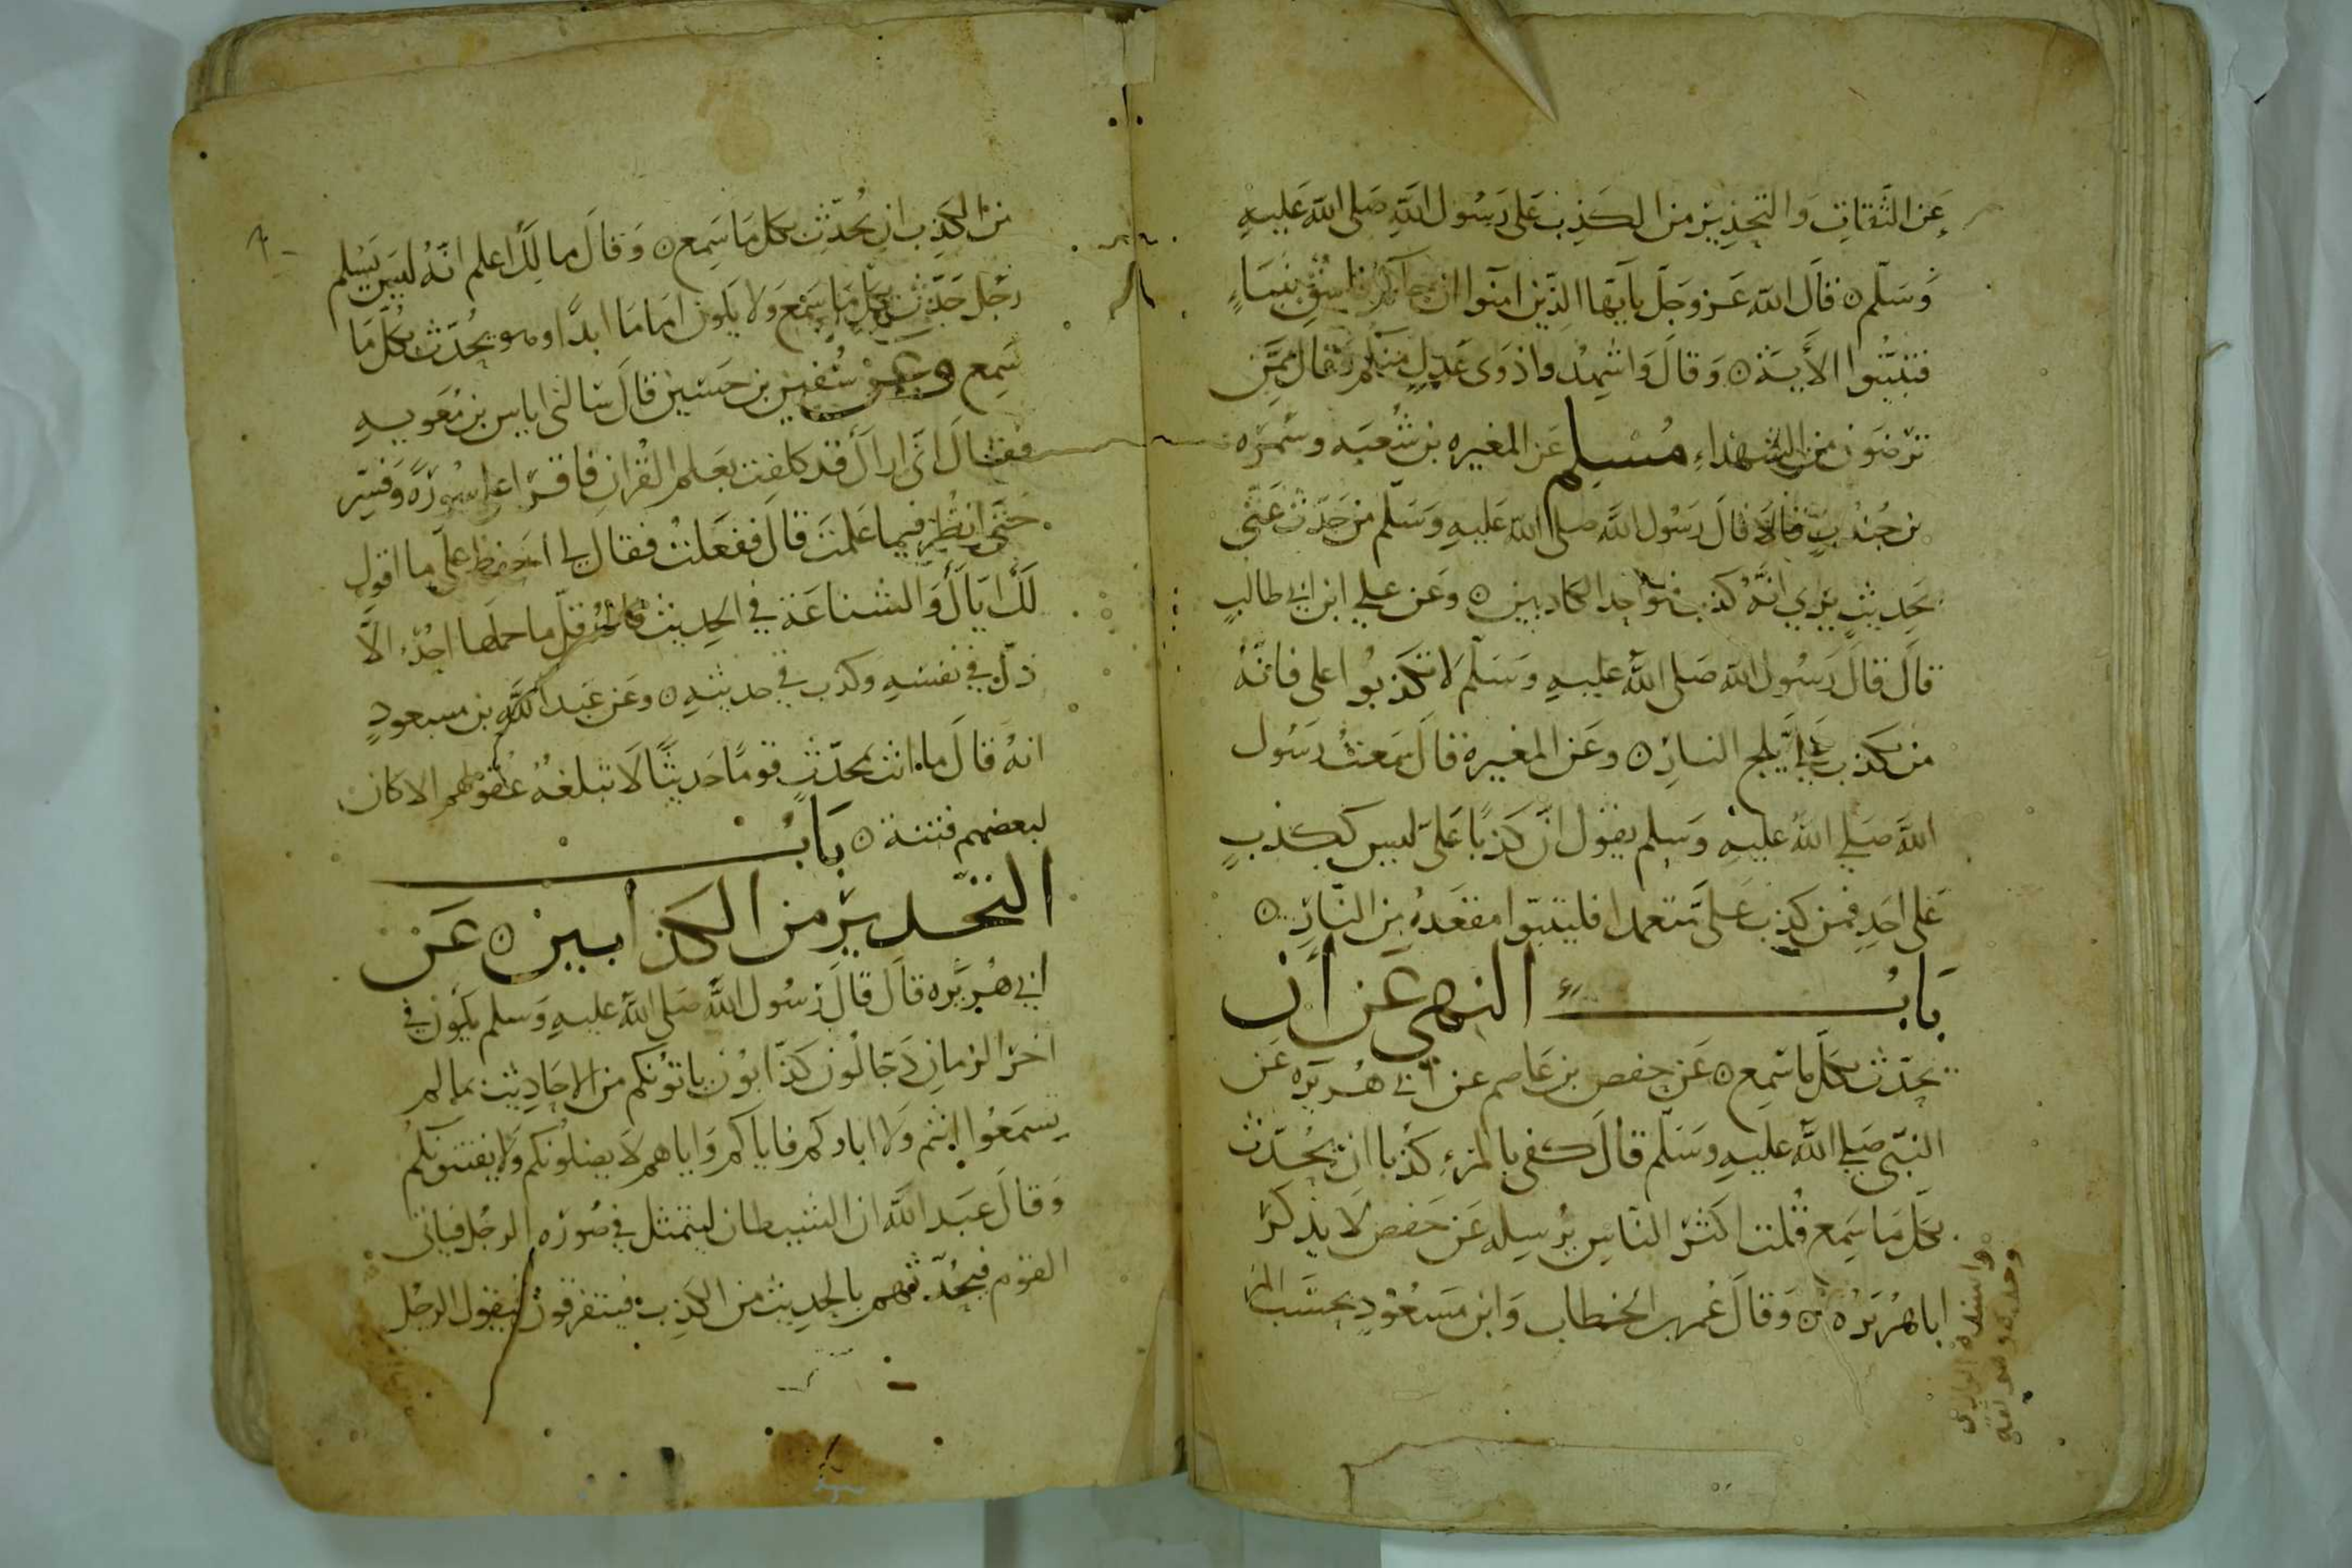 عَن الثَّقاتِ وَالتحذِير من الكَذِب عَلى رَسُول اللهِ صَلى الله عَليهِ
وَسَلّم ٥ قَال الله عَز وَجَلّ يا آيّها الذِين امنوا ان جآكم فاسُق بنَبَاءٍ
فتبيّنُوا الأيَة ٥ وَقالَ وَاشهِدُوا ذوَى عَدلٍ منكم وَقال مِمَّن
تَرضَون من الشهدَاء مُسْلِم عَن المغيره بن شُعبَه وسَمُرَه
بن جُندُبٍ قالا قالَ رَسُول الله صلى الله عَليهِ وَسَلّم من حَدّث عَنّى
بحَدِيثٍ يُرى انّهُ كذب فهُوَ احد الكاذبين ٥ وَعَن علي ابن ابي طالبٍ
قالَ قالَ رَسُول الله صَلى الله عليهِ وَسَلّم لا تكذبُوا على فانّهُ
من يكذب عَليَّ يلج النار ٥ وعَن المغيرة قالَ سَمعتُ رَسُول
الله صَلي الله عليهِ وَسلم يقول انّ كَذبًا عَلىّ ليس ككذبٍ
عَلى احَدٍ فمن كذبَ عَلىَّ متعمدا فليتبوّا مقعَدهُ مِن النّارِ ٥
بَابُ النهي عَن أن
يحدّث بكل ما سَمِع ٥ عَن حفص بن عَاصم عن أبي هُريَره عَن
النبّي صَلي الله عليهِ وَسَلّم قالَ كفى بالمرءِ كذبا ان يُحدّث
بكل مَا سَمِع قُلت اكثر النّاسِ يُرسِله عَن حَفص لَا يذكرُ
ابا هُرَيرَه ٥ وَقالَ عُمر بن الخطاب وَابن مَسعُودٍ بحسَب المرء
واسنده الرازى
وحده وهو ثقة
من الكَذِب ان يُحدّث بكل مَا سَمِع ٥ وَقالَ مالِك اعلم انّهُ ليسَ يَسْلم
رَجُل حَدّث بكل مَا سَمع وَلا يكون امَاما ابدًا وهو يُحدّث بكُلّ مَا
سَمِع وعَن سُفين بن حسَين قالَ سَالنى اياس بن مُعَويهِ
فقالَ انّى اراك قد كلفت بعَلم القُرانِ فاقرا على سُورَةً وَفسّر
حتّى انظُر فيما عَلمتَ قالَ ففعَلتُ فقال لى احفظ علىّ ما اقول
لَكَ ايّاك وَالشناعَة في الحَدِيث فانه قلّ ما حملها احَدٌ الّا
ذلّ في نفسِهِ وَكذب في حديثهِ ٥ وعَن عَبد الله بن مسعودٍ
انهُ قالَ ما انت بمحدّثٍ قومًا حَديثًا لَا تبلغهُ عُقولهم الا كان
لبعضهم فتنة ٥ بَابُ
التّحذير من الكَذابين ٥ عَن
ابي هُريَره قالَ قالَ رَسُول الله صَلى الله عليهِ وَسلم يكون في
اخر الزمانِ دَجّالُون كذّابُون ياتونكم من الاحَاديث بما لم
تسمَعُوا انتم وَلا اباوكم فاياكم وَاياهم لَا يضلونكم وَلا يفتنونكم
وَقالَ عَبد الله ان الشيطان ليتمثل في صُورَه الرجُل فياتى
القوم فيحُدّثهم بالحديث من الكذِب فيتفرقون فيقول الرجُل